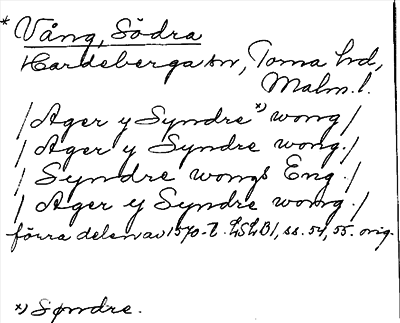 * Vång, Södra
Hardeberga sn, Torna hd,
Malm. l.
/ Ager y Syndre *) wong /
/ Ager y Syndre wong. /
/ Syndre wongs Eng. /
/ Ager y Syndre wong. /
förra delen av 1570-t. LSLB1, ss. 54, 55. orig.
*) Søndre.